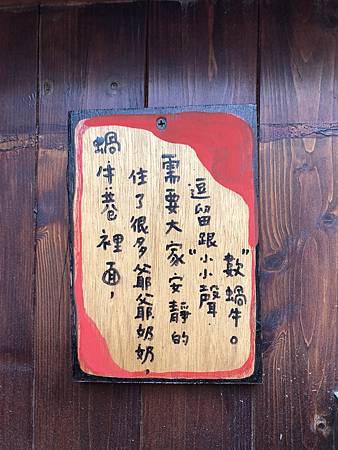 蝸牛巷裡面，
住了很多爺爺奶奶，
需要大家安靜的
逗留跟"小小聲
"數蝸牛。